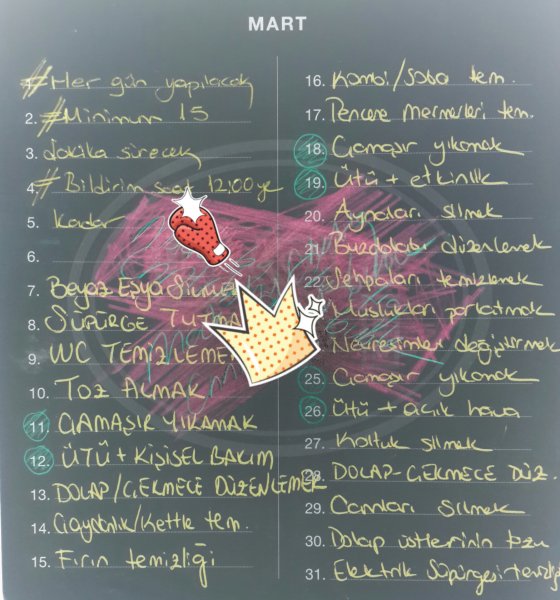 MART
#Her gün yapılacak
2. #Minimum 15
3. dakika sürecek
4. # Bildirim saat 12:00 ye
5. kadar
6.
7. Beyaz Eşya Silmek
8. SÜPÜRGE TUTMA
9. WC TEMİZLEME
10. TOZ ALMAK
11. ÇAMAŞIR YIKAMAK
12. ÜTÜ + KİŞİSEL BAKIM
13. DOLAP/ÇEKMECE DÜZENLEMEK
14. Çaydanlık/Kettle tem.
15. Fırın temizliği
16. Kombi/soba tem.
17. Pencere mermerleri tem.
18. Çamaşır yıkamak
19. Ütü + etkinlik
20. Aynaları silmek
21. Buzdolabı düzenlemek
22. Sehpaları temizlemek
Muslukları parlatmak
Nevresimleri değiştirmek
25. Çamaşır yıkamak
26. Ütü + açık hava
27. Koltuk silmek
28. DOLAP-ÇEKMECE DÜZ.
29. Camları silmek
30. Dolap üstlerinin tozu
31. Elektrik süpürgesi temizliği